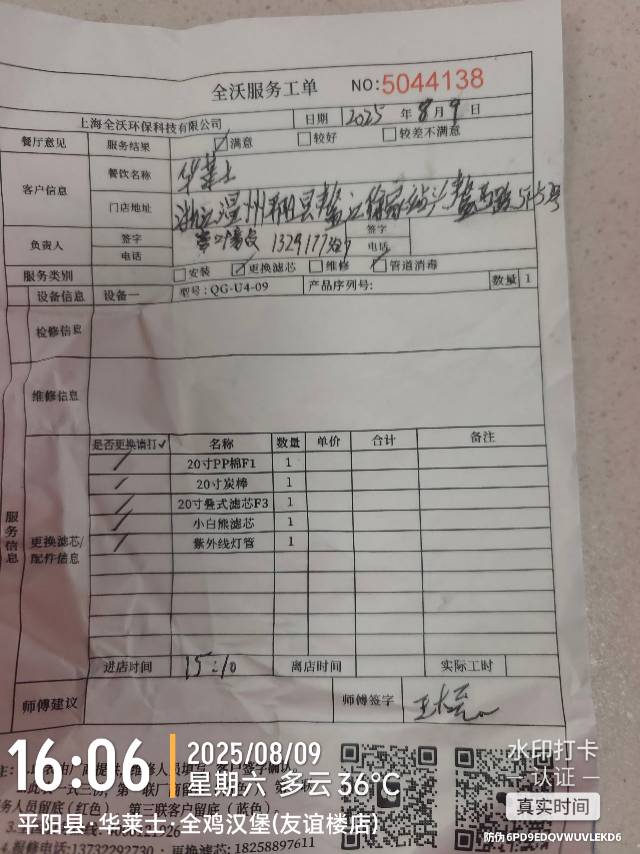 全沃服务工单 NO:5044138
上海全沃环保科技有限公司 日期 2025 年 8 月 9 日
餐厅意见 服务结果 ☑满意 □较好 □较差不满意
客户信息 餐饮名称 华莱士
门店地址 浙江温州平阳县鳌江
负责人 签字 签字
电话 电话
服务类别 □安装 ☑更换滤芯 □维修 ☑管道消毒
设备信息 设备一 型号:QG-U4-09 产品序列号: 数量 1
检修信息
维修信息
服务信息
更换滤芯/配件信息
是否更换请打✓ 名称 数量 单价 合计 备注
20寸PP棉F1 1
20寸炭棒 1
20寸叠式滤芯F3 1
小白熊滤芯 1
紫外线灯管 1
进店时间 15:10 离店时间 实际工时
师傅建议 师傅签字
16:06 2025/08/09
星期六 多云 36℃
平阳县·华莱士·全鸡汉堡(友谊楼店)
水印打卡
认证
真实时间
防伪 6PD9EDOVWUVLEKD6
务人员留底(红色) 第三联客户留底(蓝色).
4.报修电话:13732292730·更换滤芯:18258897611